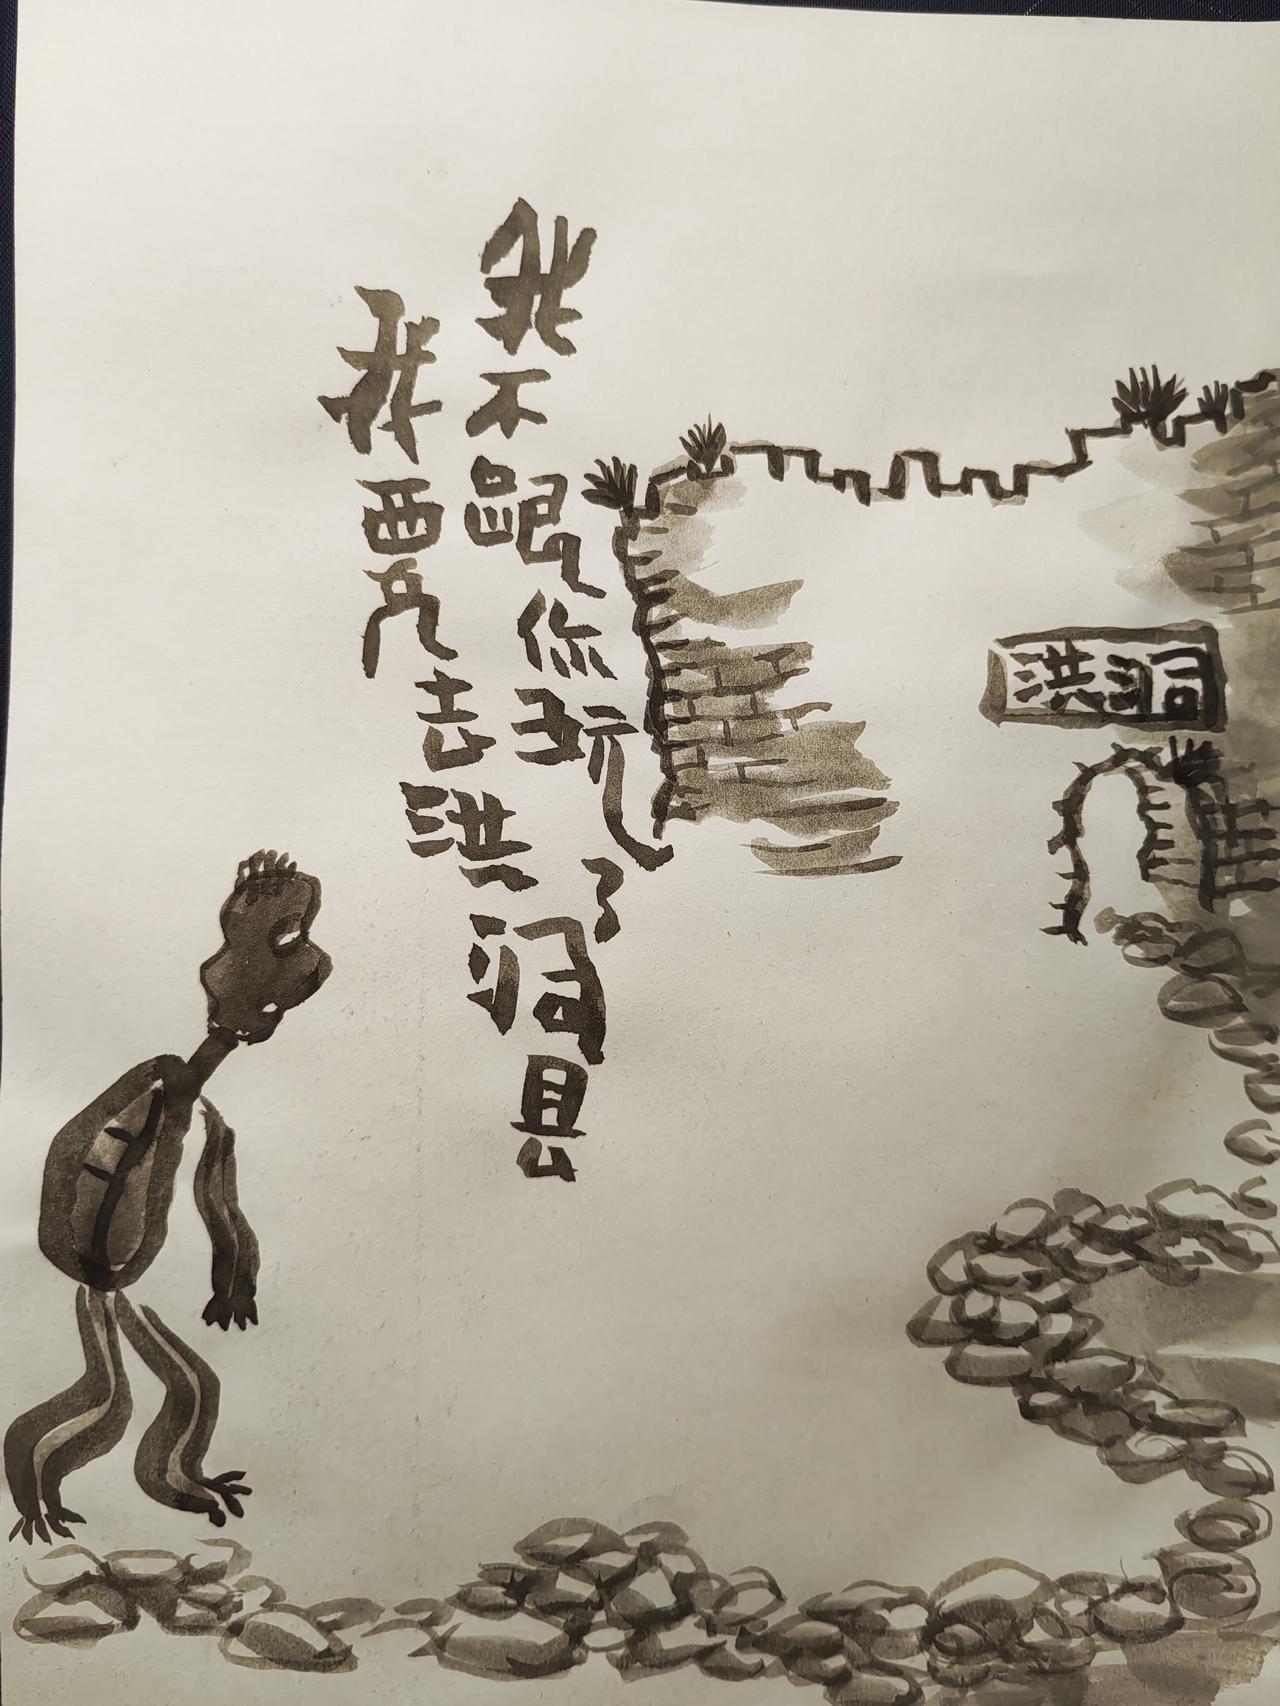 我不跟你玩了
我要去洪洞县
洪洞